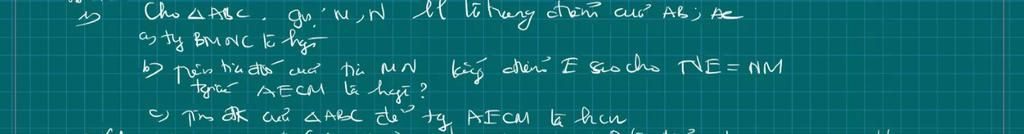 Cho △ABC. gọi M, N ll là trung điểm của AB; AC
a) tg BMNC là hgì
b) Trên tia đối của tia MN lấy điểm E sao cho NE = NM
tgiác AECM là hgì?
c) Tìm đk của △ABC để tg AECM là hcn